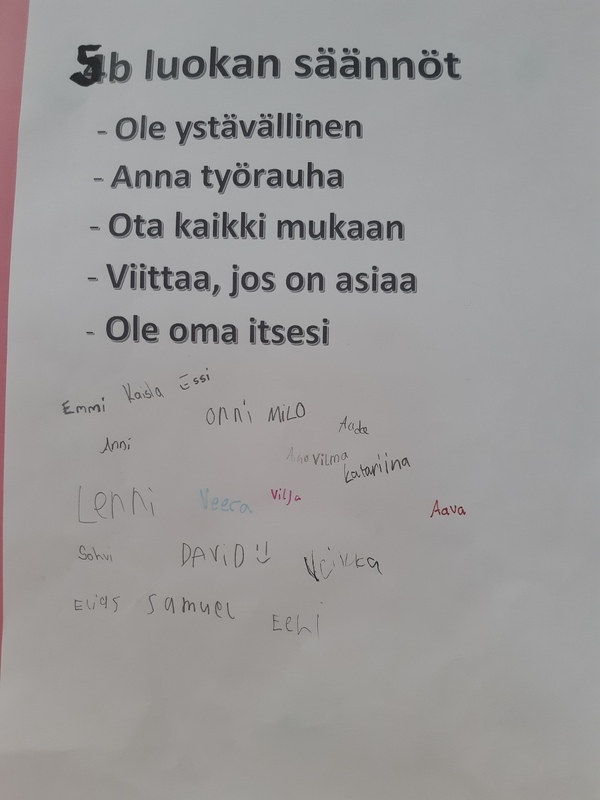 5b luokan säännöt
- Ole ystävällinen
- Anna työrauha
- Ota kaikki mukaan
- Viittaa, jos on asiaa
- Ole oma itsesi
Emmi Kaisla Essi
onni MiLO
Anni
Vilma
katariina
Lenni Veera Vilja
Aava
DAViD :)
Veikka
ELiAS Samuel